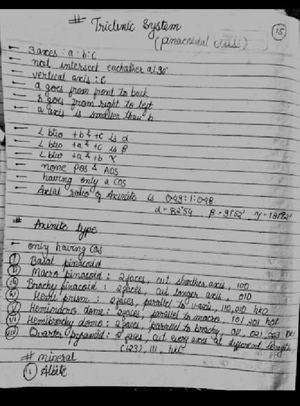 # Triclinic System
(pinacoidal class)
15
3 axes : a : b : c
not intersect eachother at 90°
vertical axis : c
a goes from front to back
b goes from right to left
a axis is smaller than b
∠ b/w +b & +c is α
∠ b/w +a & +c is β
∠ b/w +a & +b γ
none POS & AOS
having only a COS
Axial ratio of Axinite is 0.49:1:0.48
α = 82°54' β = 91°52'
# Axinite type
only having COS
Basal pinacoid
Macro pinacoid : 2 faces, cut shorter axis, 100
Brachy pinacoid : 2 faces, cut longer axis, 010
Hemi prism : 2 faces, parallel to v. axis, 110, hk0
Hemimacro dome : 2 faces, parallel to macro, 101, 201, h0l
Hemibrachy dome : 2 faces, parallel to brachy, 011, 021
Quarter pyramid : 2 faces, cut every axis at different length
(123), 111, hkl
# mineral
Albite